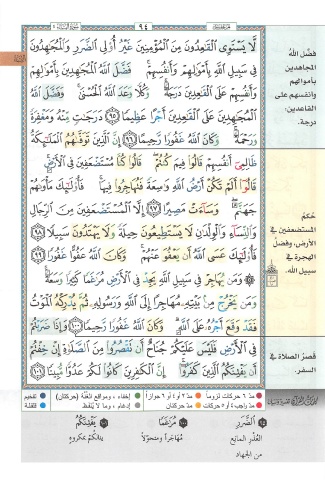 ٩٤
لَّا يَسْتَوِى ٱلْقَٰعِدُونَ مِنَ ٱلْمُؤْمِنِينَ غَيْرُ أُو۟لِى ٱلضَّرَرِ وَٱلْمُجَٰهِدُونَ
فِى سَبِيلِ ٱللَّهِ بِأَمْوَٰلِهِمْ وَأَنفُسِهِمْ ۚ فَضَّلَ ٱللَّهُ ٱلْمُجَٰهِدِينَ بِأَمْوَٰلِهِمْ
وَأَنفُسِهِمْ عَلَى ٱلْقَٰعِدِينَ دَرَجَةً ۚ وَكُلًّا وَعَدَ ٱللَّهُ ٱلْحُسْنَىٰ ۚ وَفَضَّلَ ٱللَّهُ
ٱلْمُجَٰهِدِينَ عَلَى ٱلْقَٰعِدِينَ أَجْرًا عَظِيمًا ٩٥ دَرَجَٰتٍ مِّنْهُ وَمَغْفِرَةً
وَرَحْمَةً ۚ وَكَانَ ٱللَّهُ غَفُورًا رَّحِيمًا ٩٦ إِنَّ ٱلَّذِينَ تَوَفَّىٰهُمُ ٱلْمَلَٰٓئِكَةُ
ظَالِمِىٓ أَنفُسِهِمْ قَالُوا۟ فِيمَ كُنتُمْ ۖ قَالُوا۟ كُنَّا مُسْتَضْعَفِينَ فِى ٱلْأَرْضِ ۚ
قَالُوٓا۟ أَلَمْ تَكُنْ أَرْضُ ٱللَّهِ وَٰسِعَةً فَتُهَاجِرُوا۟ فِيهَا ۚ فَأُو۟لَٰٓئِكَ مَأْوَىٰهُمْ
جَهَنَّمُ ۖ وَسَآءَتْ مَصِيرًا ٩٧ إِلَّا ٱلْمُسْتَضْعَفِينَ مِنَ ٱلرِّجَالِ
وَٱلنِّسَآءِ وَٱلْوِلْدَٰنِ لَا يَسْتَطِيعُونَ حِيلَةً وَلَا يَهْتَدُونَ سَبِيلًا ٩٨
فَأُو۟لَٰٓئِكَ عَسَى ٱللَّهُ أَن يَعْفُوَ عَنْهُمْ ۚ وَكَانَ ٱللَّهُ عَفُوًّا غَفُورًا ٩٩
۞ وَمَن يُهَاجِرْ فِى سَبِيلِ ٱللَّهِ يَجِدْ فِى ٱلْأَرْضِ مُرَٰغَمًا كَثِيرًا وَسَعَةً ۚ
وَمَن يَخْرُجْ مِنۢ بَيْتِهِۦ مُهَاجِرًا إِلَى ٱللَّهِ وَرَسُولِهِۦ ثُمَّ يُدْرِكْهُ ٱلْمَوْتُ
فَقَدْ وَقَعَ أَجْرُهُۥ عَلَى ٱللَّهِ ۗ وَكَانَ ٱللَّهُ غَفُورًا رَّحِيمًا ١٠٠ وَإِذَا ضَرَبْتُمْ
فِى ٱلْأَرْضِ فَلَيْسَ عَلَيْكُمْ جُنَاحٌ أَن تَقْصُرُوا۟ مِنَ ٱلصَّلَوٰةِ إِنْ خِفْتُمْ
أَن يَفْتِنَكُمُ ٱلَّذِينَ كَفَرُوٓا۟ ۚ إِنَّ ٱلْكَٰفِرِينَ كَانُوا۟ لَكُمْ عَدُوًّا مُّبِينًا ١٠١
فضَّل اللهُ
المجاهدين
بأموالهم
وأنفسهم على
القاعدين
درجة.
حُكمُ
المستضعفين في
الأرض، وفضل
الهجرة في
سبيل الله.
قصرُ الصلاة في
السفر.
مدّ ٦ حركات لزوماً
مدّ ٢ أو ٤ أو ٦ جوازاً
إخفاء، ومواقع الغُنَّة (حركتان)
تفخيم
مدّ واجب ٤ أو ٥ حركات
مدّ حركتان
إدغام، وما لا يُلفَظ
قلقلة
الضَّرَرِ
العُذْرِ المانِعِ
من الجهادِ
مُرَاغَمًا
مُهَاجَراً ومُتَحَوَّلاً
يَفْتِنَكُمُ
ينالكُمْ بمكروهٍ